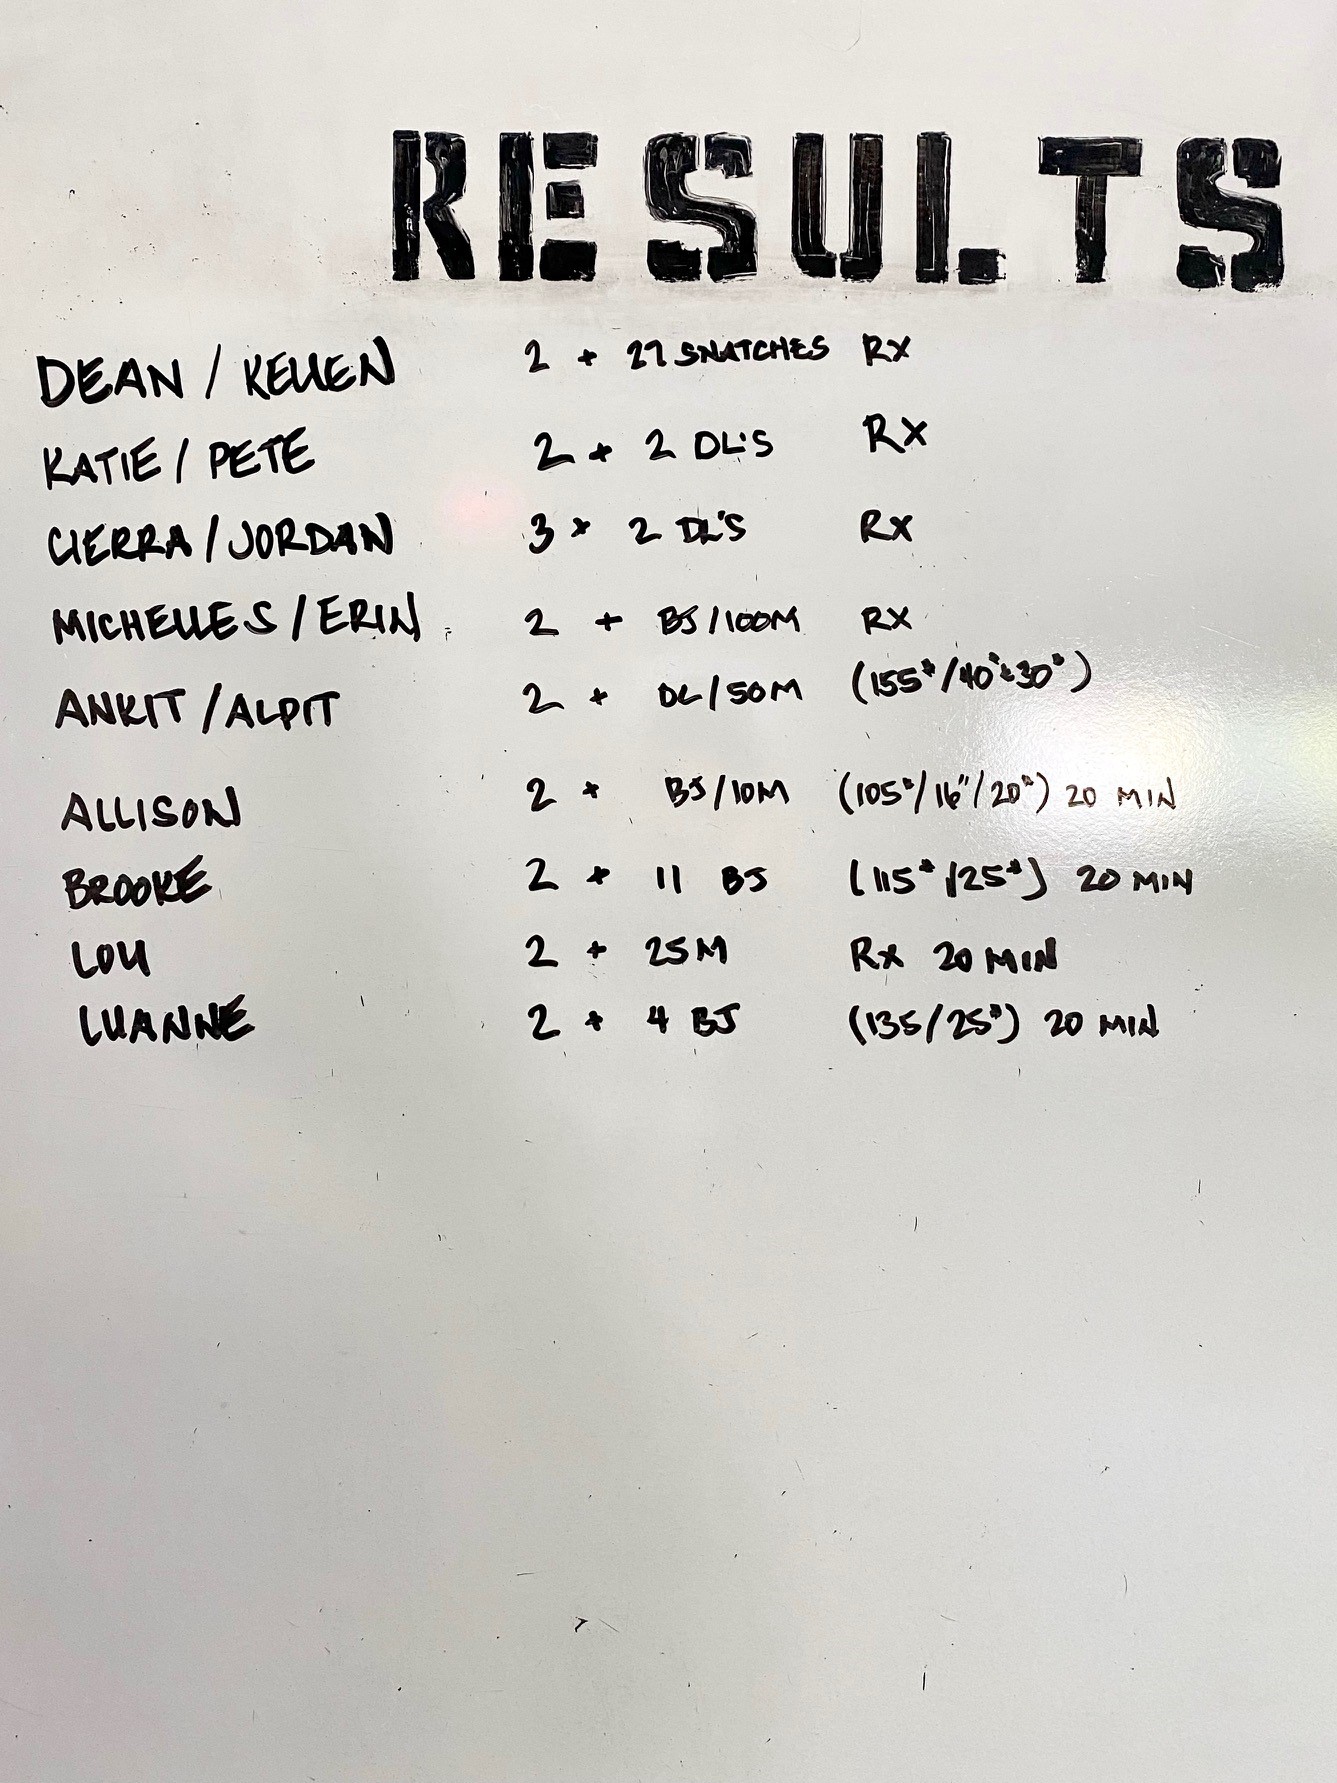 RESULTS
DEAN / KELLEN 2 + 27 SNATCHES RX
KATIE / PETE 2 + 2 DL'S RX
CIERRA / JORDAN 3 + 2 DL'S RX
MICHELLE S / ERIN 2 + BJ/100M RX
ANKIT / ALPIT 2 + DL/50M (155#/40#+30#)
ALLISON 2 + BJ/10M (105#/16"/20#) 20 MIN
BROOKE 2 + 11 BJ (115#/25#) 20 MIN
LOU 2 + 25M RX 20 MIN
LUANNE 2 + 4 BJ (135/25#) 20 MIN